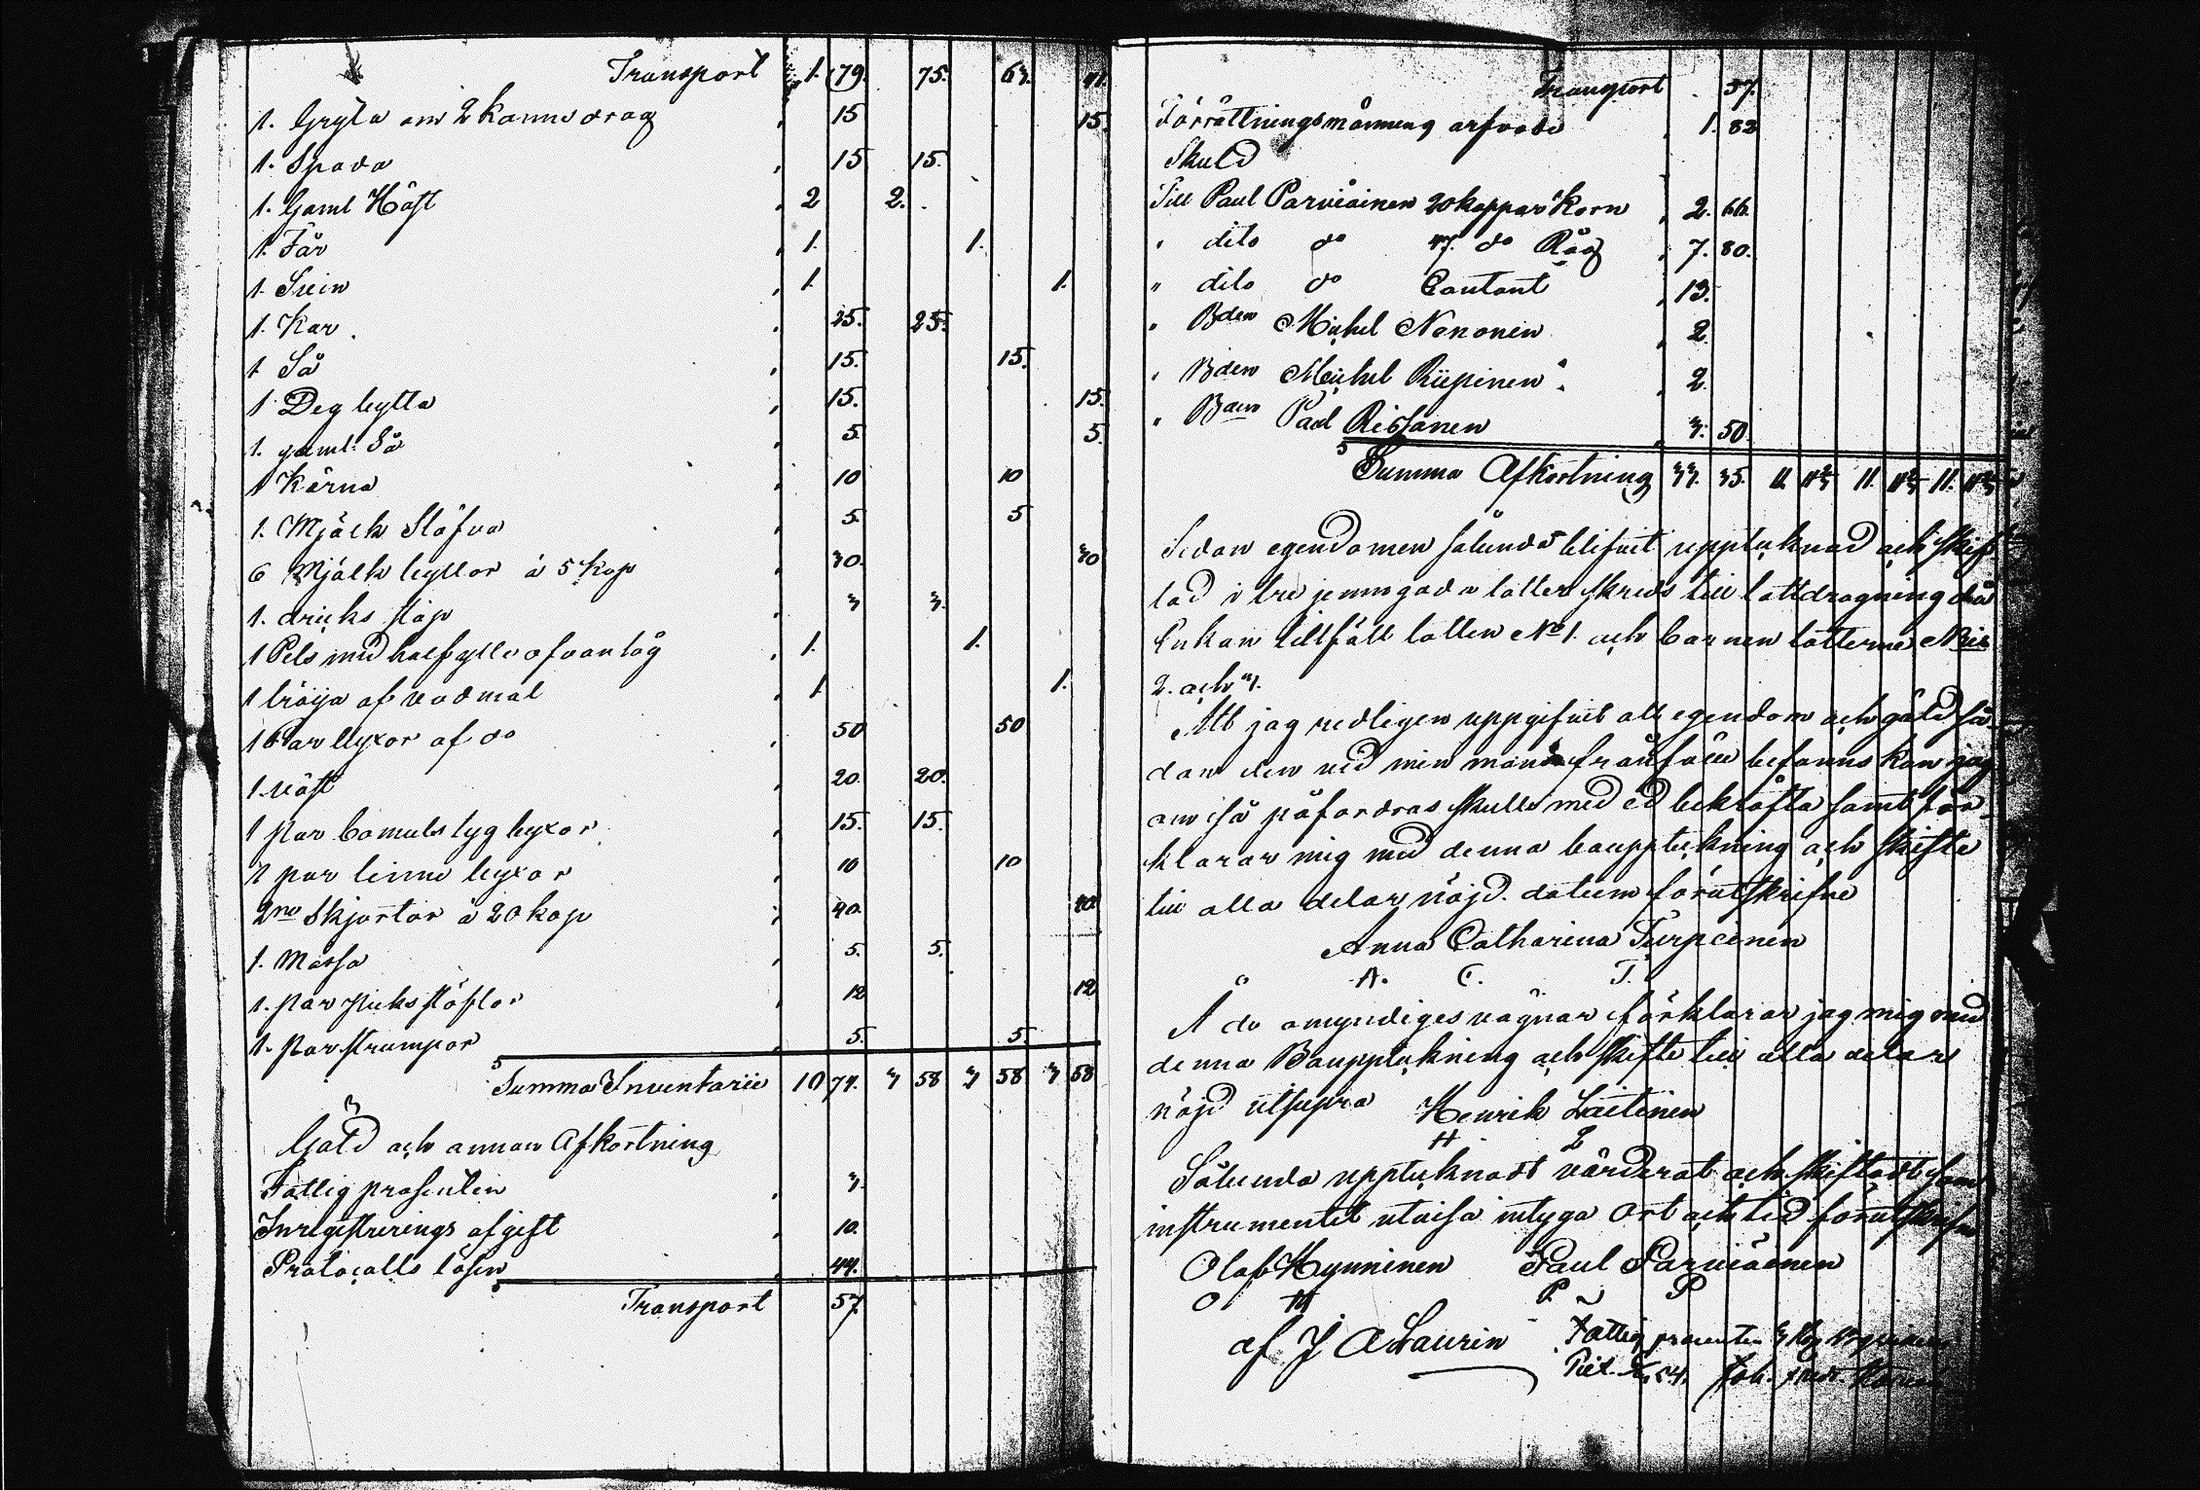 Transport 1. 79. 75. 63. 41.
1. Gryta om 2 kannor drag 15 15.
1. Spada 15 15.
1. Gaml Häst 2 2.
1. Får 1. 1.
1. Svin 1. 1.
1. Kar 25. 25.
1 Så 15. 15.
1 Deg bytta 15. 15.
1. gaml. Så 5. 5.
1 Kärna 10 10
1. Mjölk Stäfva 5. 5
6 Mjölk byttor à 5 kop 30. 30
1. dricks stop 3 3.
1 Pels med halfylle ofvantåg 1. 1.
1 tröija af vadmal 1. 1.
1 Par byxor af do 50 50
1. väst 20. 20.
1 par bomuls tyg byxor 15. 15.
1 par linne byxor 10 10
2ne Skjortor à 20 kop 40. 40.
1. Mössa 5. 5.
1. par pieksstöflor 12 12
1. par strumpor 5. 5.
Summa Inventarie 10 74. 3 58 3 58 3 58
Gäld och annan Afkortning
Fattig procenten 3.
Inregistrerings afgift 10.
Protocolls lösen 44.
Transport 57.
Transport 57.
Förrättningsmännens arfvode 1. 82
Skuld
Till Paul Parviainen 20 kappar Korn 2. 66.
" dito do 47. do Råg 7. 80.
" dito do Contant 13.
" Bden Michel Nenonen 2.
" Bden Michel Riipinen 2.
" Bden Paul Rissanen 3. 50
Summa Afkortning 33. 35. 11. 11⅔ 11. 11⅔ 11. 11⅔
Sedan egendomen sålunda blifvit upptecknad och skif
tad i tre jemngoda lotter skreds till lottdragning då
Enkan tillföll lotten No 1. och barnen lotterne Nris
2. och 3.
Att jag redligen uppgifvit all egendom och gäld så
dan den vid min mans frånfälle befanns kan jag
om så påfordras skulle med ed bekräfta samt för
klarar mig med denna bouppteckning och skifte
till alla delar nöjd. datum förutskrifne
Anna Catharina Turpeinen
A. C. T.
Å de omyndiges vägnar förklarar jag mig med
denna Bouppteckning och skifte till alla delar
nöjd utsupra Henrik Laitinen
H L
Sålunda upptecknadt värderat och skiftadt som
instrumentet utvisa intyga ort och tid förutskrefne
Olof Hynninen Paul Parviainen
O H P. P
af J A Laurin Fattig procenten 3 kop